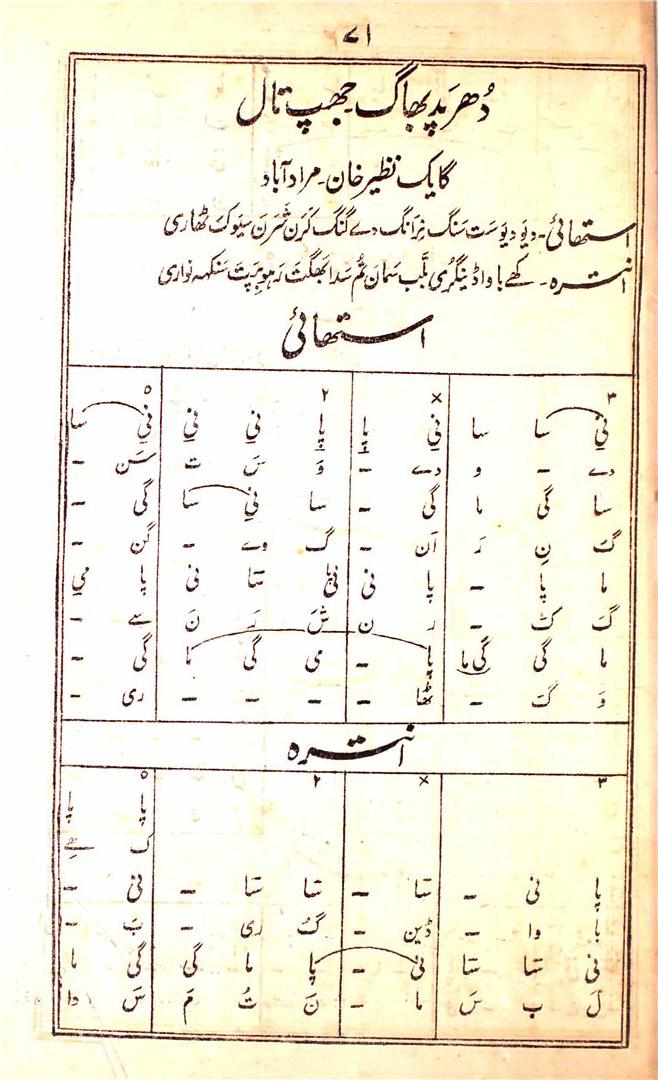 ۷۱
دُھرَپد بھاگ۔ جھپ تال
گایک نظیر خان۔ مراد آباد
استھائی۔ دیَو دیوَست سنگ تِرَانگ دے گنگ کَرَن شَرَن سیوک ٹھاری
انترہ۔ کھے باوا ڈینگری بلَّب سَمان تُم سَدا بھگت رَہو بِرَپَت سنکھہ نواری
استھائی
۳ × ۲ ۰
نی سا سا نی پا پا نی نی نی سا
دے - و دے - وَ سَ ت سَن -
سا گی ما گی - سا نی سا گی -
گ نِ رَ اَن - گ وے - گن -
ما پا - پا نی نی سا نی پا می
گ ک - رَ ن شَ رَ نَ سے -
ما گی گی ما پا - می گی ما گی -
وَ کَ - ٹھا - - - - ری -
انترہ
۳ × ۲ ۰
پا پا
ک ھے
پا نی - سا - سا سا - نی -
با وا - ڈین - گ ری - بَ -
نی سا سا نی - پا ما گی گی ما
لَ ب سَ ما - نَ تُ مَ سَ دا